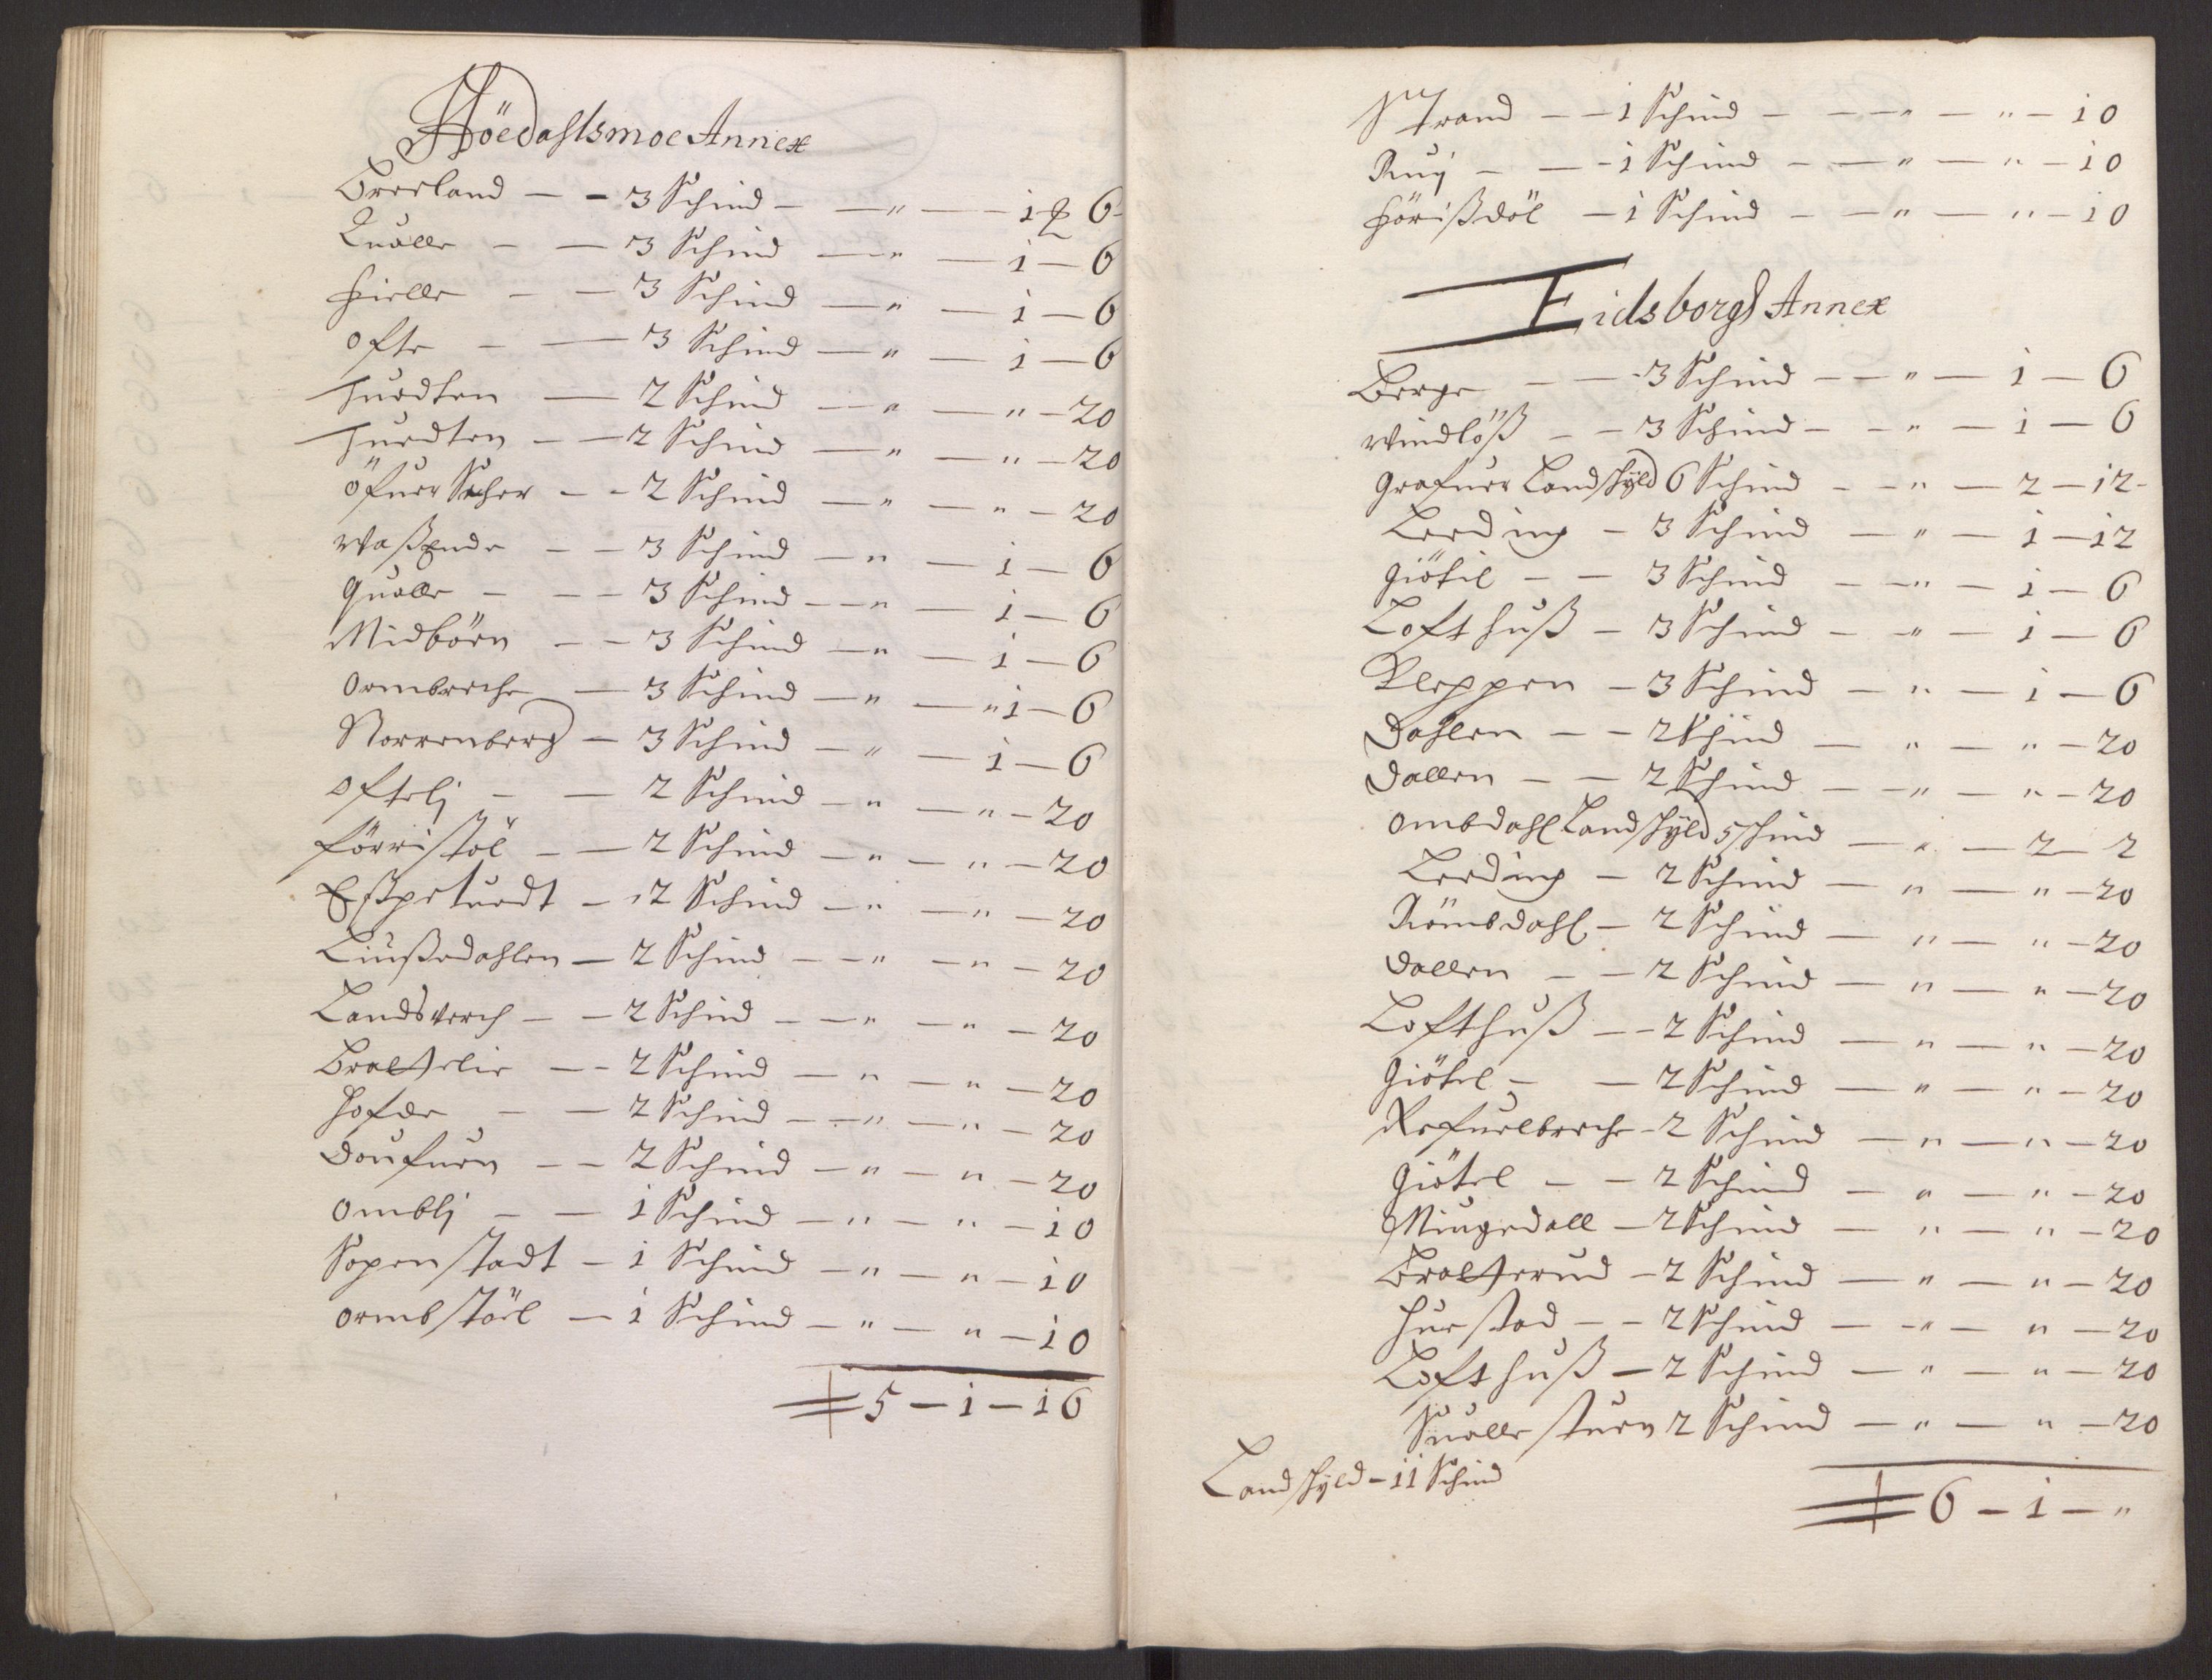 Höedahlsmoe Annex
Breeland — - 3 Schind — — " — — 1 # 6 -
Qualle - — 3 Schind — " — 1 — 6
Fielle - — 3 Schind — " — 1 — 6
Ofte - — 3 Schind — " — 1 — 6
Tuedten — 2 Schind — " — " — 20
Tuedten — 2 Schind — " — " — 20
Öfuer — - 2 Schind — " — " — 20
Waßende - — 3 Schind — " — 1 — 6
Qualle - — 3 Schind — " — 1 — 6
Midböen — - 3 Schind — " — 1 — 6
Ormbreche — 3 Schind — " — " 1 — 6
Norrenberg — 3 Schind — " — 1 — 6
Oftelj - — 2 Schind — " — " — 20
Förristöl - — 2 Schind — " — " — 20
Espetuedt — 2 Schind — " — " — 20
Liußedahlen — 2 Schind — " — " — 20
Landsverch — - 2 Schind — " — " — 20
Braltelie — - 2 Schind — " — " — 20
Hofde - — 2 Schind — " — " — 20
Doufuen — - 2 Schind — " — " — 20
Omblj - — 1 Schind — " — " — 10
Sopenstadt — 1 Schind — " — " — 10
Ormbstöel — 1 Schind — " — " — 10
5 — 1 — 16
Strand — - 1 Schind — — " — " — 10
Ruj - — 1 Schind — — " — " — 10
Hörißdöl — 1 Schind — — " — " — 10
Eidsborgs Annex
Berge — — 3 Schind — — " — 1 — 6
Windlöß — - 3 Schind — - " — 1 — 6
Grafuer Landskyld 6 Schind — - " — 2 — 12 -
Leeding — 3 Schind — " — 1 — 12
Giötil — - 3 Schind — — " — 1 — 6
Lofthuß — 3 Schind — " — 1 — 6
Kleppen — 3 Schind — " — 1 — 6
Dahlen — - 2 Schind — " — " — 20
Dallen — - 2 Schind — " — " — 20
Ombdahl Landskyld 5 schind — " — 2 — 2
Leeding — 2 Schind — " — " — 20
Römbdahl — 2 Schind — " — " — 20
Dallen — - 2 Schind — " — " — 20
Lofthuß — - 2 Schind — " — " — 20
Giötel — - 2 Schind — " — " — 20
Refuelbreche — 2 Schind — " — " — 20
Giötel — - 2 Schind — " — " — 20
Mingedall — 2 Schind — " — " — 20
Bralterud — 2 Schind — " — " — 20
Huestad — - 2 Schind — " — " — 20
Lofthuß — 2 Schind — " — " — 20
Sualestuen 2 Schind — " — " — 20
Landskyld — 11 Schind
6 — 1 — "